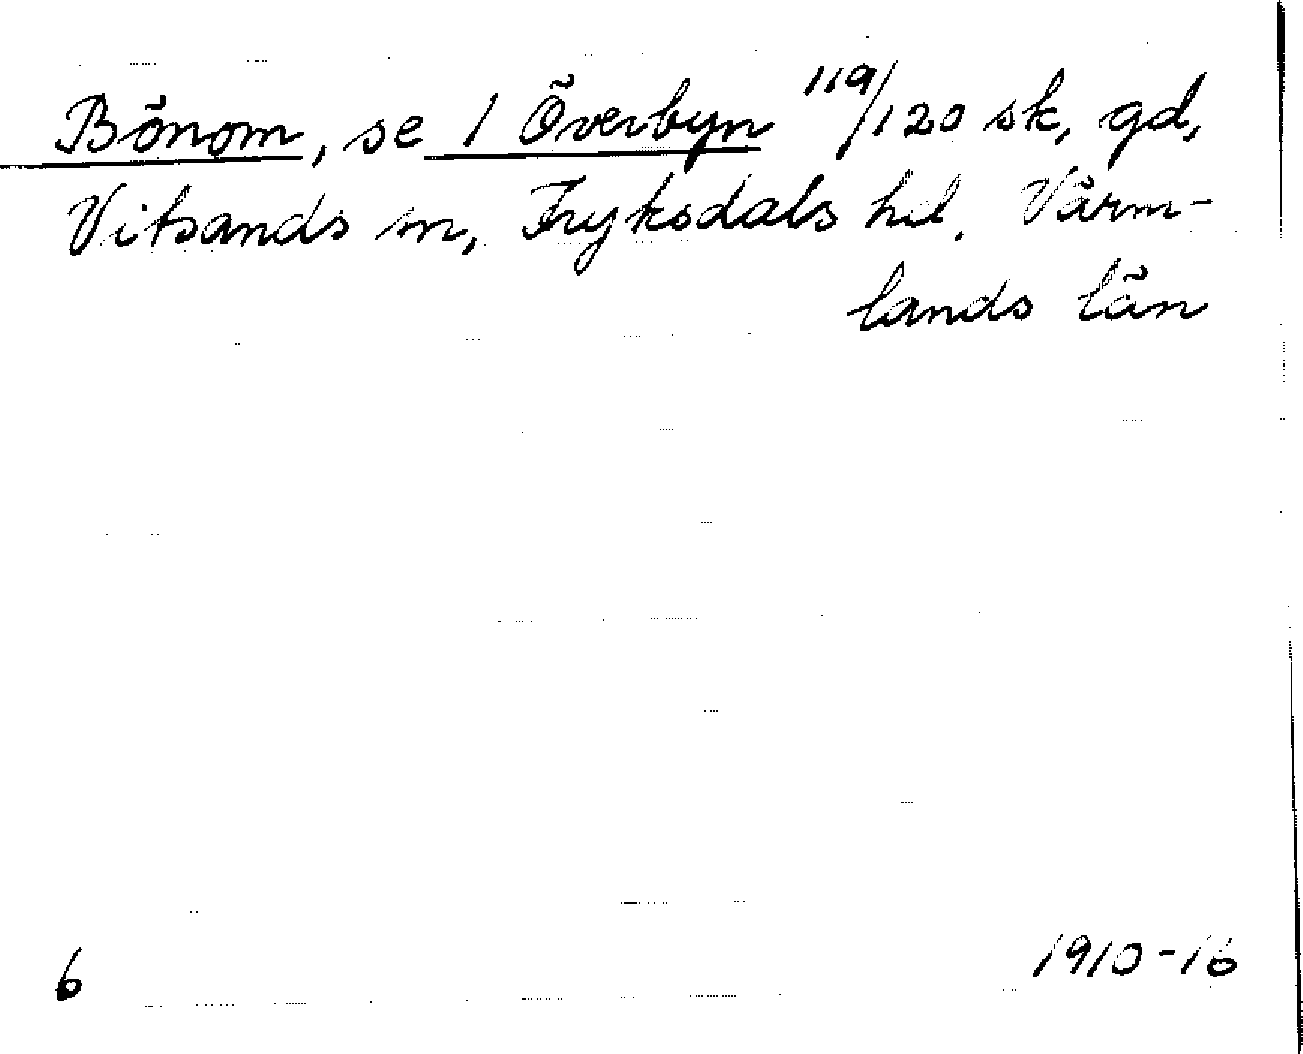 Bönom, se 1 Överbyn 119/120 sk, gd,
Vitsands sn, Fryksdals hd. Värm-
lands län
6
1910-16